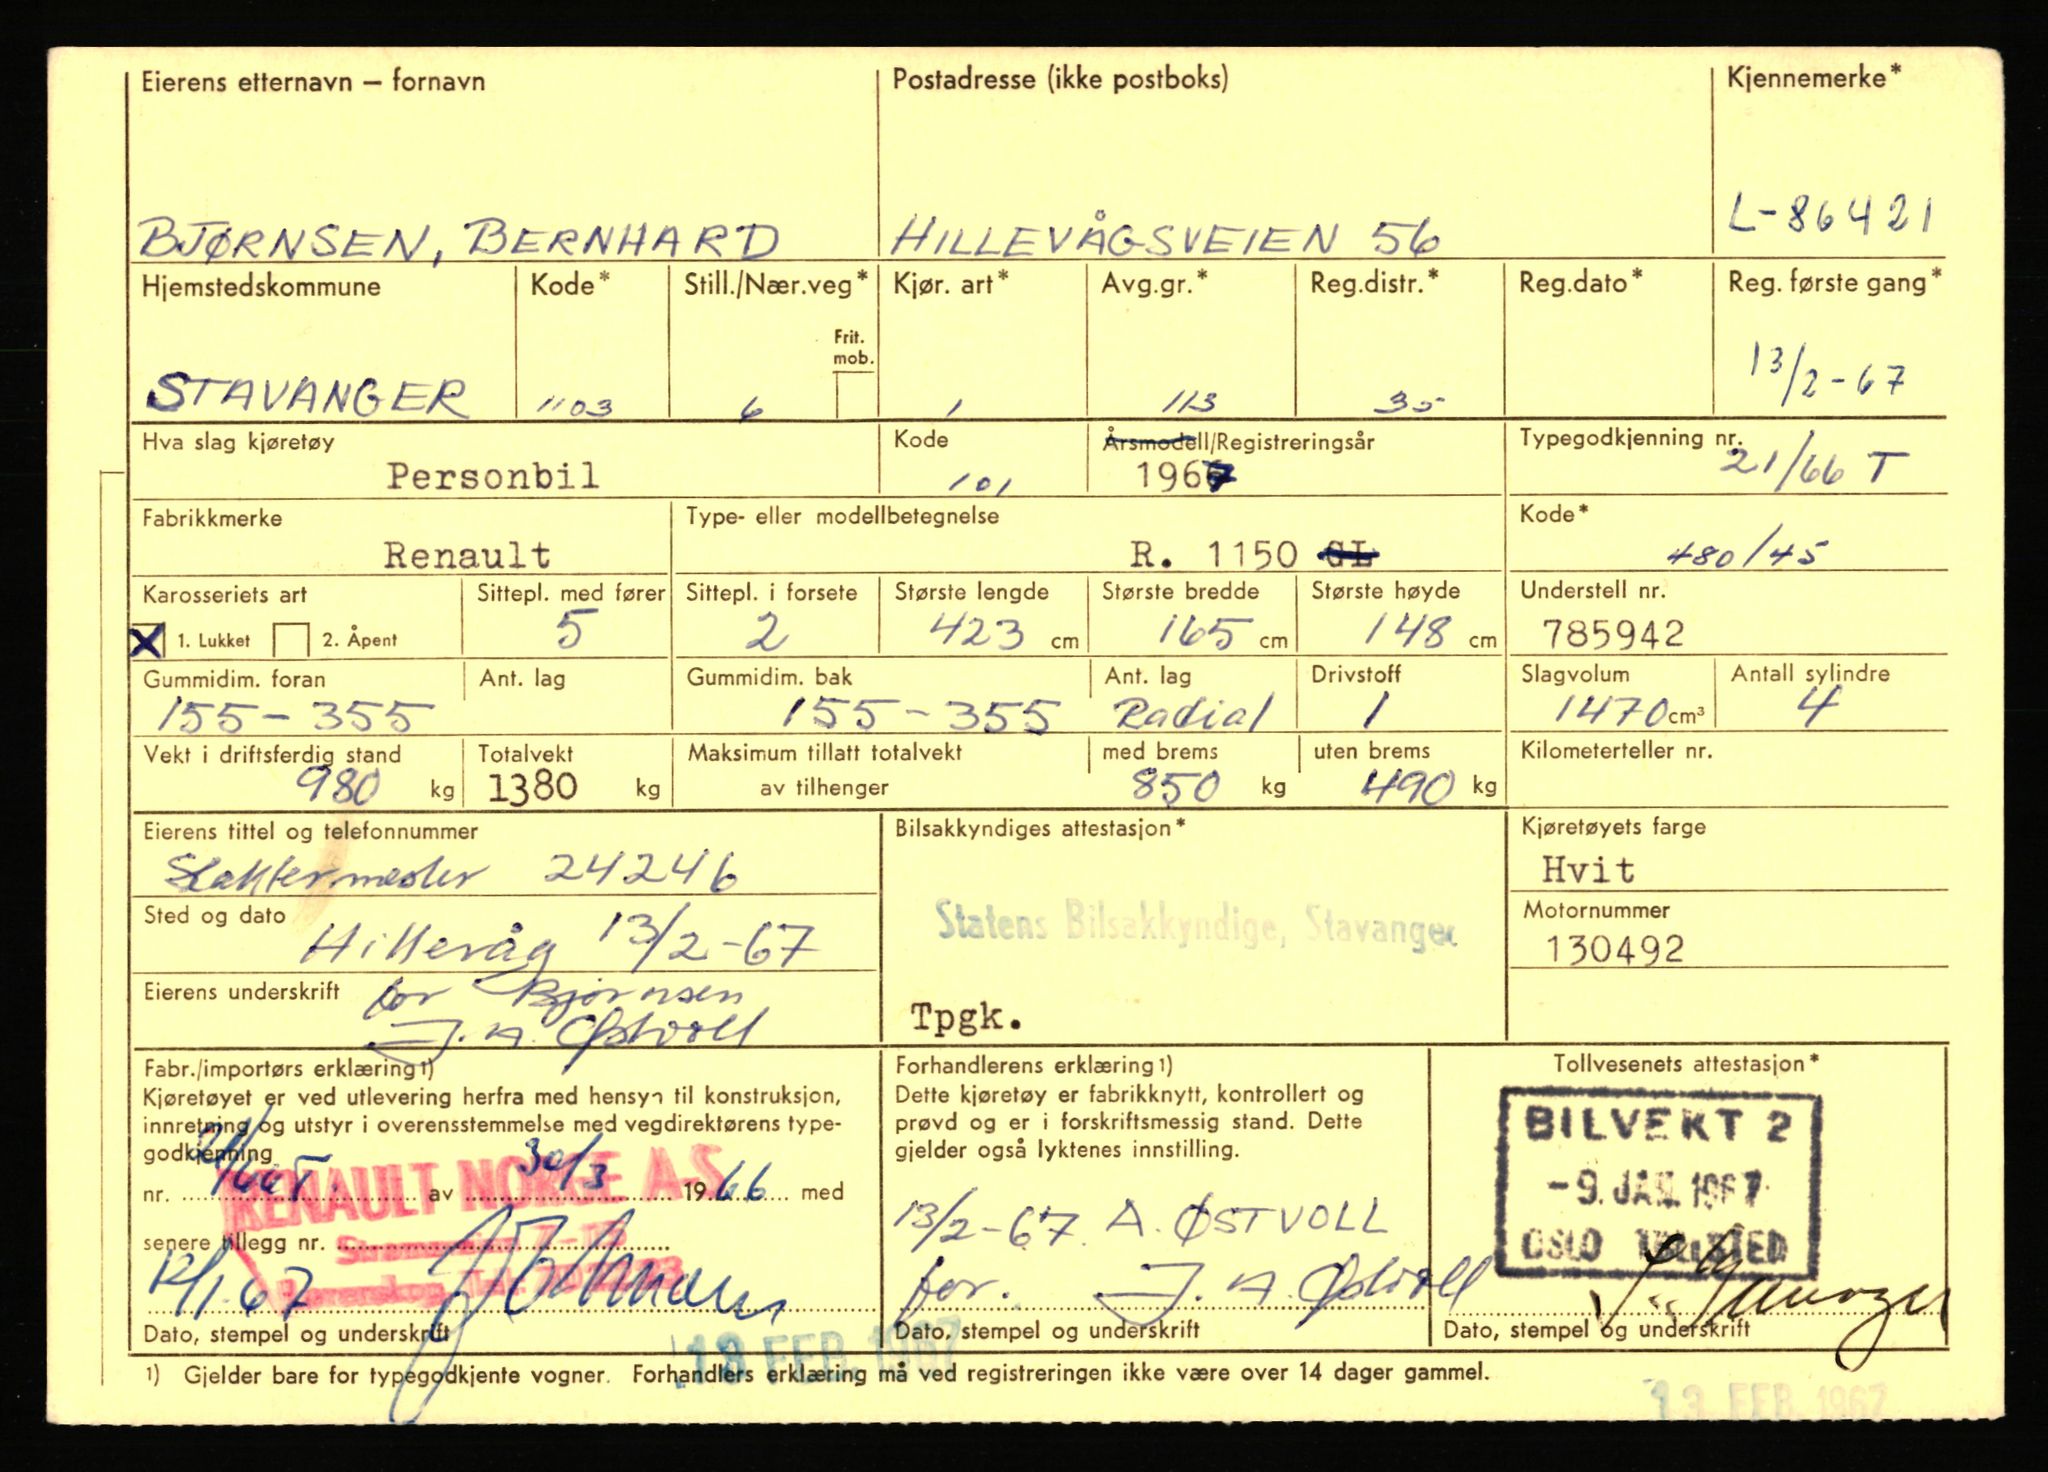 Eierens etternavn – fornavn Postadresse (ikke postboks) Kjennemerke*
BJØRNSEN, BERNHARD HILLEVÅGSVEIEN 56 L-86421
Hjemstedskommune Kode* Still./Nær.veg* Kjør. art* Avg.gr.* Reg.distr.* Reg.dato* Reg. første gang*
Frit.
mob.
STAVANGER 1103 6 1 113 35 13/2-67
Hva slag kjøretøy Kode Årsmodell/Registreringsår Typegodkjenning nr.
Personbil 101 1967 21/66 T
Fabrikkmerke Type- eller modellbetegnelse Kode*
Renault R. 1150 GL 480/45
Karosseriets art Sittepl. med fører Sittepl. i forsete Største lengde Største bredde Største høyde Understell nr.
X 1. Lukket 2. Åpent 5 2 423 cm 165 cm 148 cm 785942
Gummidim. foran Ant. lag Gummidim. bak Ant. lag Drivstoff Slagvolum Antall sylindre
155-355 155-355 Radial 1 1470 cm³ 4
Vekt i driftsferdig stand Totalvekt Maksimum tillatt totalvekt med brems uten brems Kilometerteller nr.
980 kg 1380 kg av tilhenger 850 kg 490 kg
Eierens tittel og telefonnummer Bilsakkyndiges attestasjon* Kjøretøyets farge
Slaktermester 24246 Hvit
Sted og dato Statens Bilsakkyndige, Stavanger Motornummer
Hillevåg 13/2-67 130492
Eierens underskrift for Bjørnsen
J. A. Østvoll Tpgk.
Fabr./importørs erklæring 1) Forhandlerens erklæring 1) Tollvesenets attestasjon*
Kjøretøyet er ved utlevering herfra med hensyn til konstruksjon, Dette kjøretøy er fabrikknytt, kontrollert og
innretning og utstyr i overensstemmelse med vegdirektørens type- prøvd og er i forskriftsmessig stand. Dette
godkjenning gjelder også lyktenes innstilling.
BILVEKT 2
-9. JAN. 1967
OSLO TOLLSTED
nr. 21/66T. av 30/3 1966 med
RENAULT NORGE A.S
13/2-67. A. ØSTVOLL
senere tillegg nr.
12/1-67 for. J. A. Østvoll
Dato, stempel og underskrift Dato, stempel og underskrift Dato, stempel og underskrift
13 FEB. 1967
1) Gjelder bare for typegodkjente vogner. Forhandlers erklæring må ved registreringen ikke være over 14 dager gammel.
13 FEB. 1967